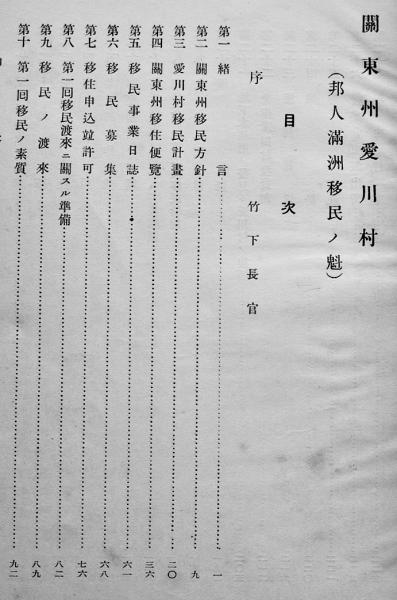 關東州愛川村
（邦人滿洲移民ノ魁）
目次
序 竹下長官
第一 緒言……一
第二 關東州移民方針……九
第三 愛川村移民計畫……二〇
第四 關東州移住便覽……三六
第五 移民事業日誌……六一
第六 移民募集……六八
第七 移住申込竝許可……七六
第八 第一回移民渡來ニ關スル準備……八二
第九 移民ノ渡來……八九
第十 第一回移民ノ素質……九二